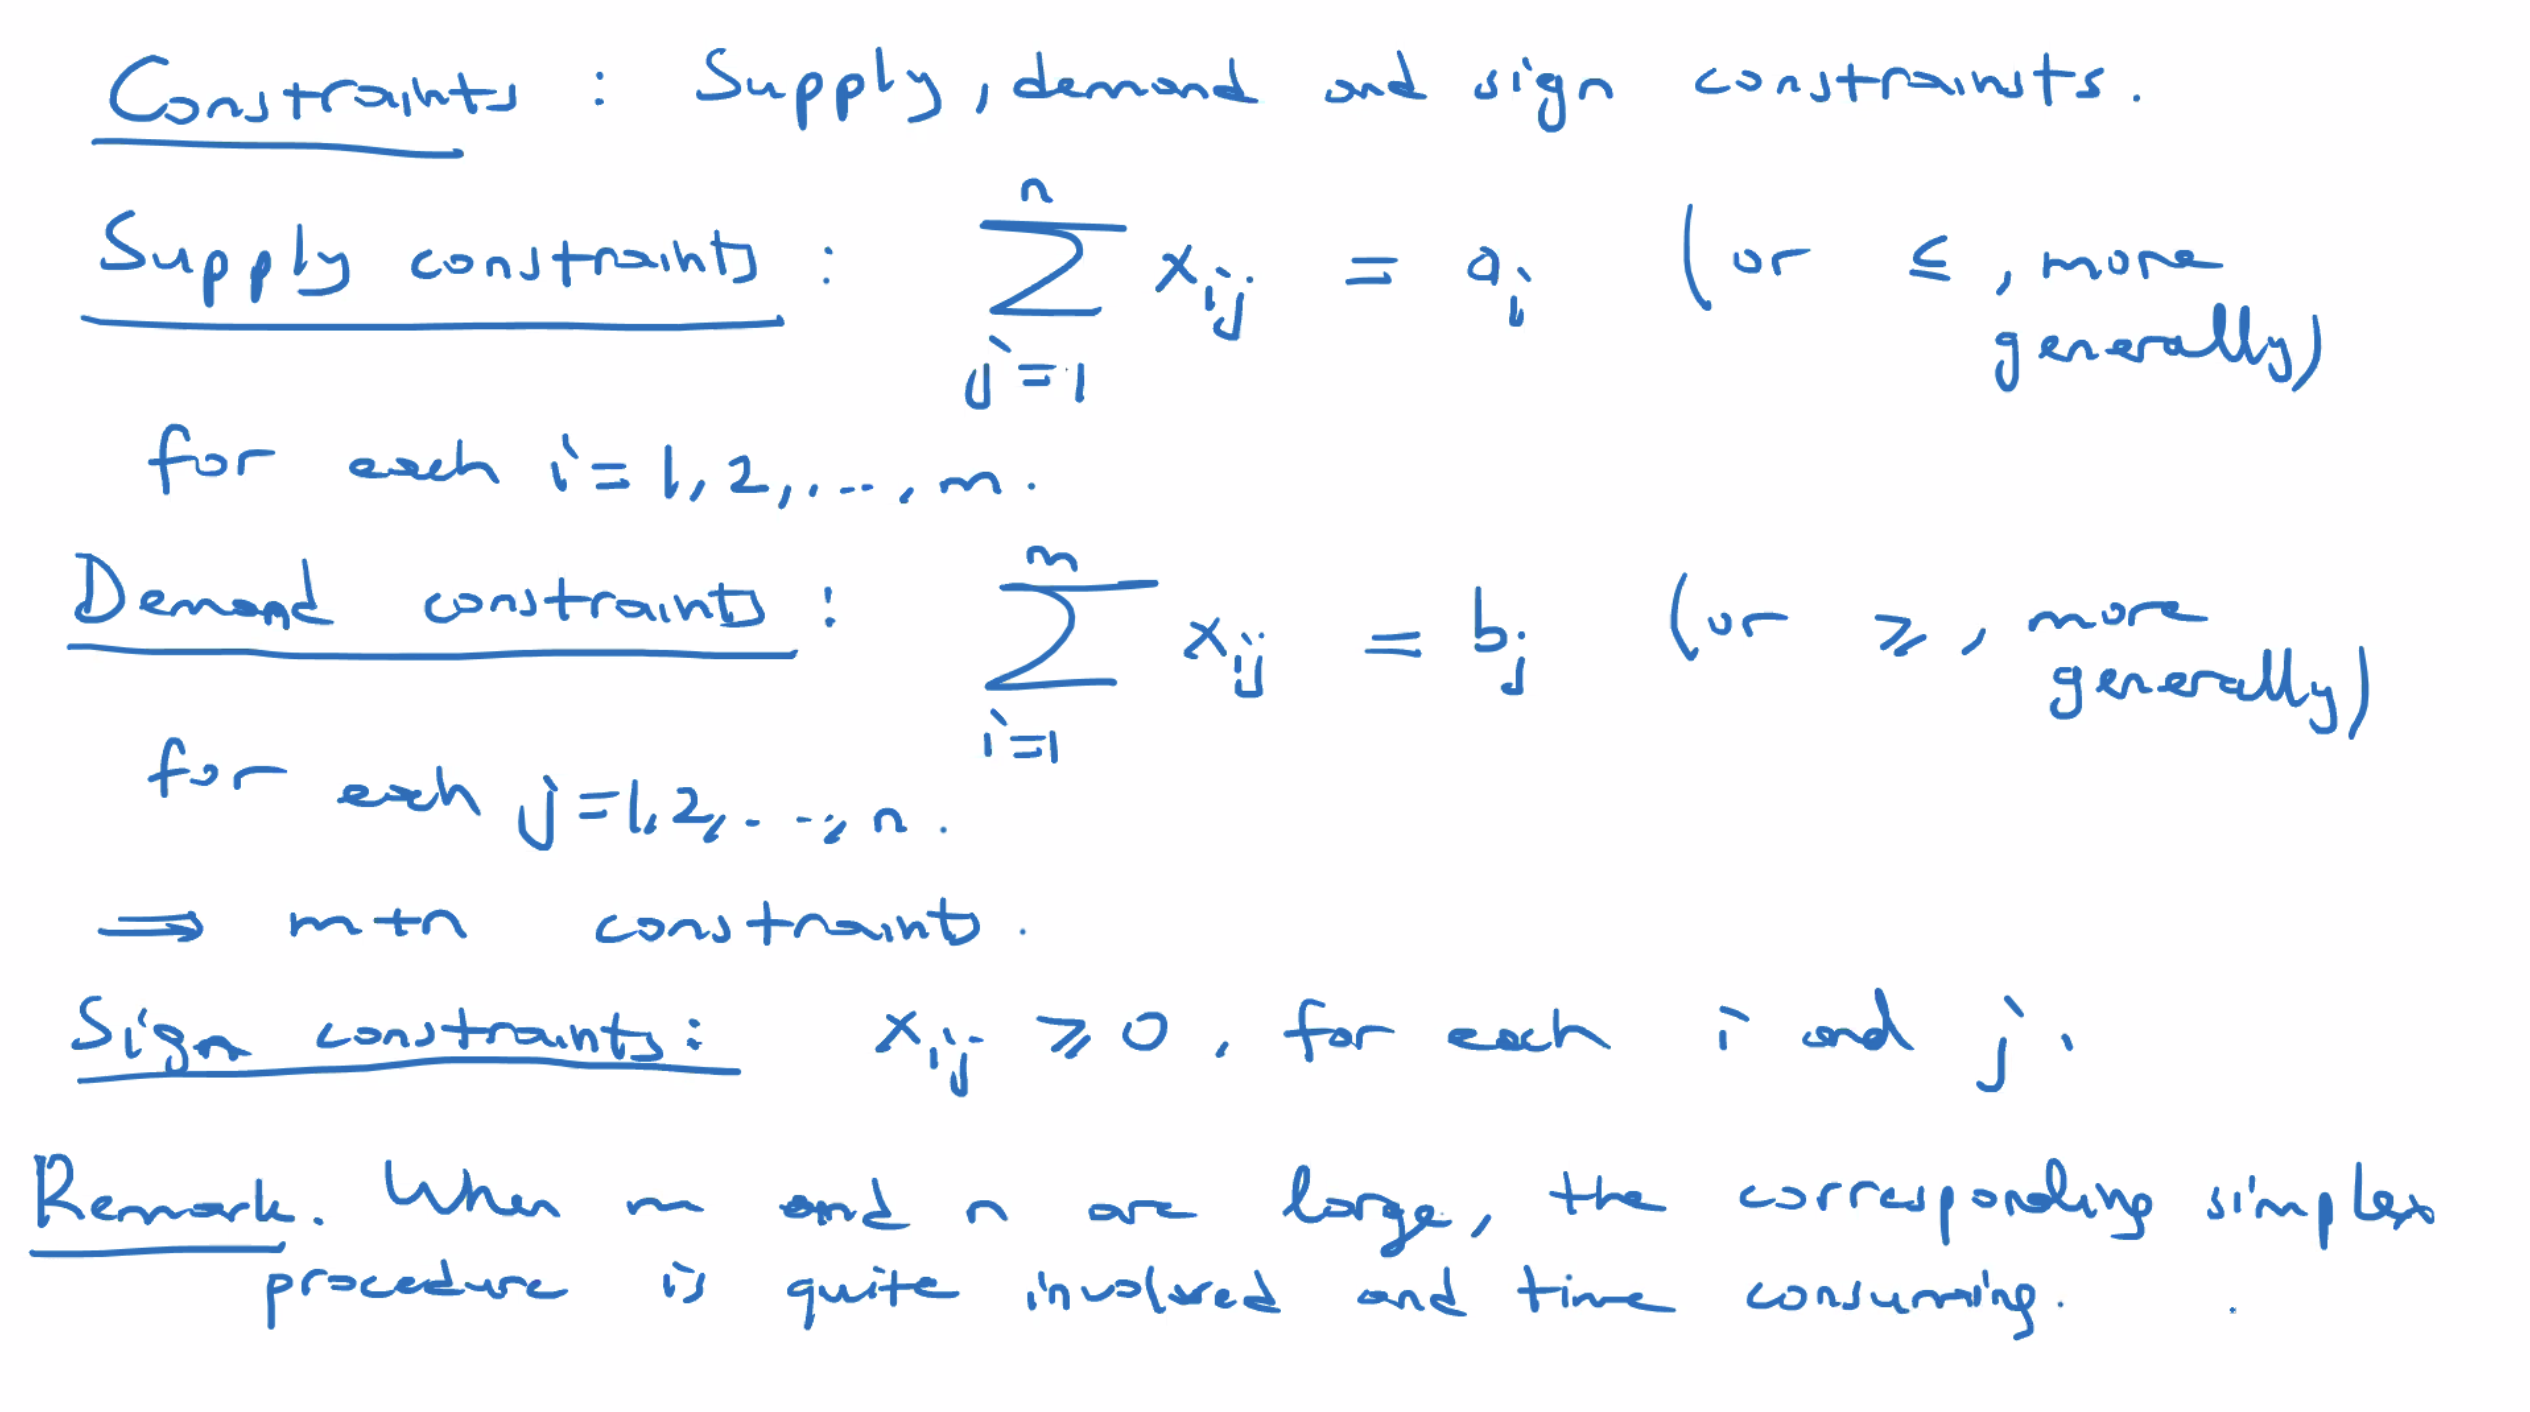 Constraints : Supply, demand and sign constrainsts.
Supply constraints : \sum_{j=1}^{n} x_{ij} = a_i (or ≤, more
generally)
for each i=1,2,...,m.
Demand constraints : \sum_{i=1}^{m} x_{ij} = b_j (or ≥, more
generally)
for each j=1,2,...,n.
⟹ m+n constraints.
Sign constraints: x_{ij} ≥ 0, for each i and j.
Remark. When m and n are large, the corresponding simplex
procedure is quite involved and time consuming.